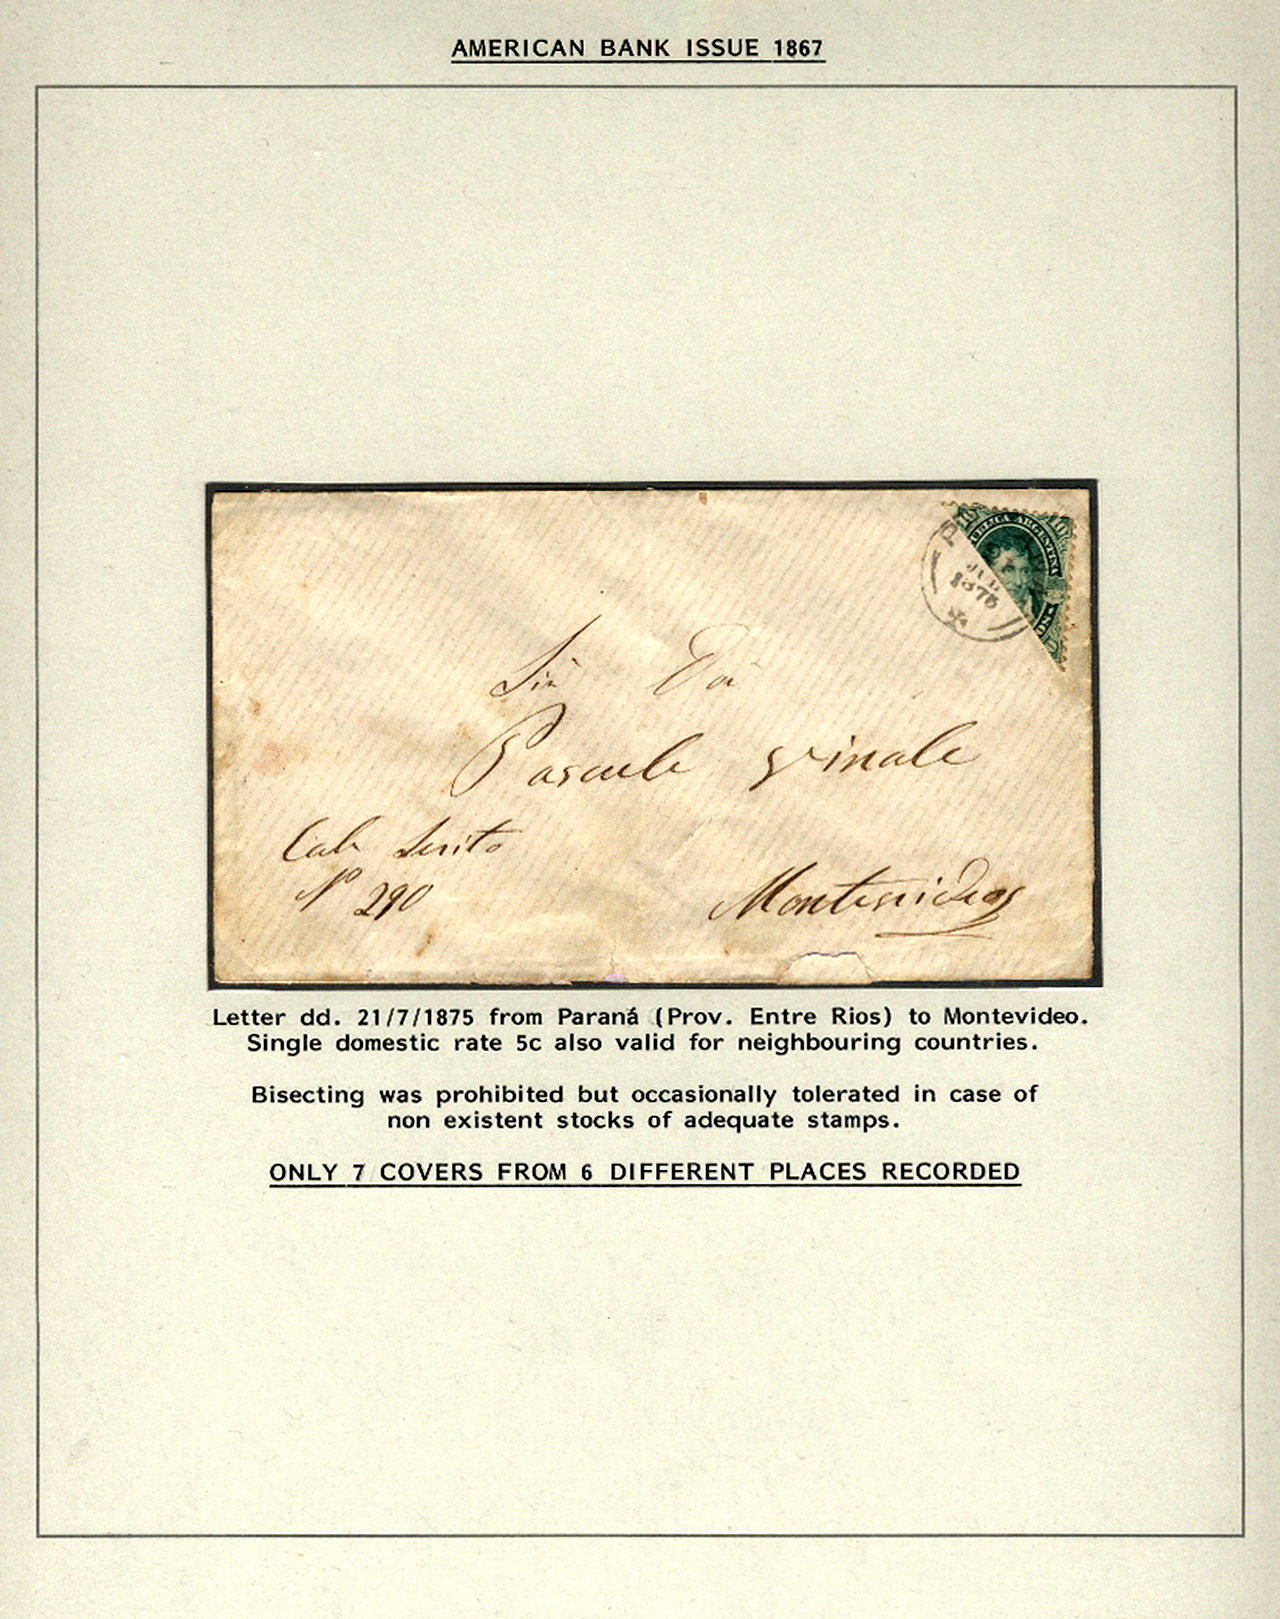 AMERICAN BANK ISSUE 1867
10
UBLICA ARGENTINA
JUL
1875
Pascuale Vinale
Calle Serito
Nº 290
Montevideo
Letter dd. 21/7/1875 from Paraná (Prov. Entre Rios) to Montevideo.
Single domestic rate 5c also valid for neighbouring countries.
Bisecting was prohibited but occasionally tolerated in case of
non existent stocks of adequate stamps.
ONLY 7 COVERS FROM 6 DIFFERENT PLACES RECORDED